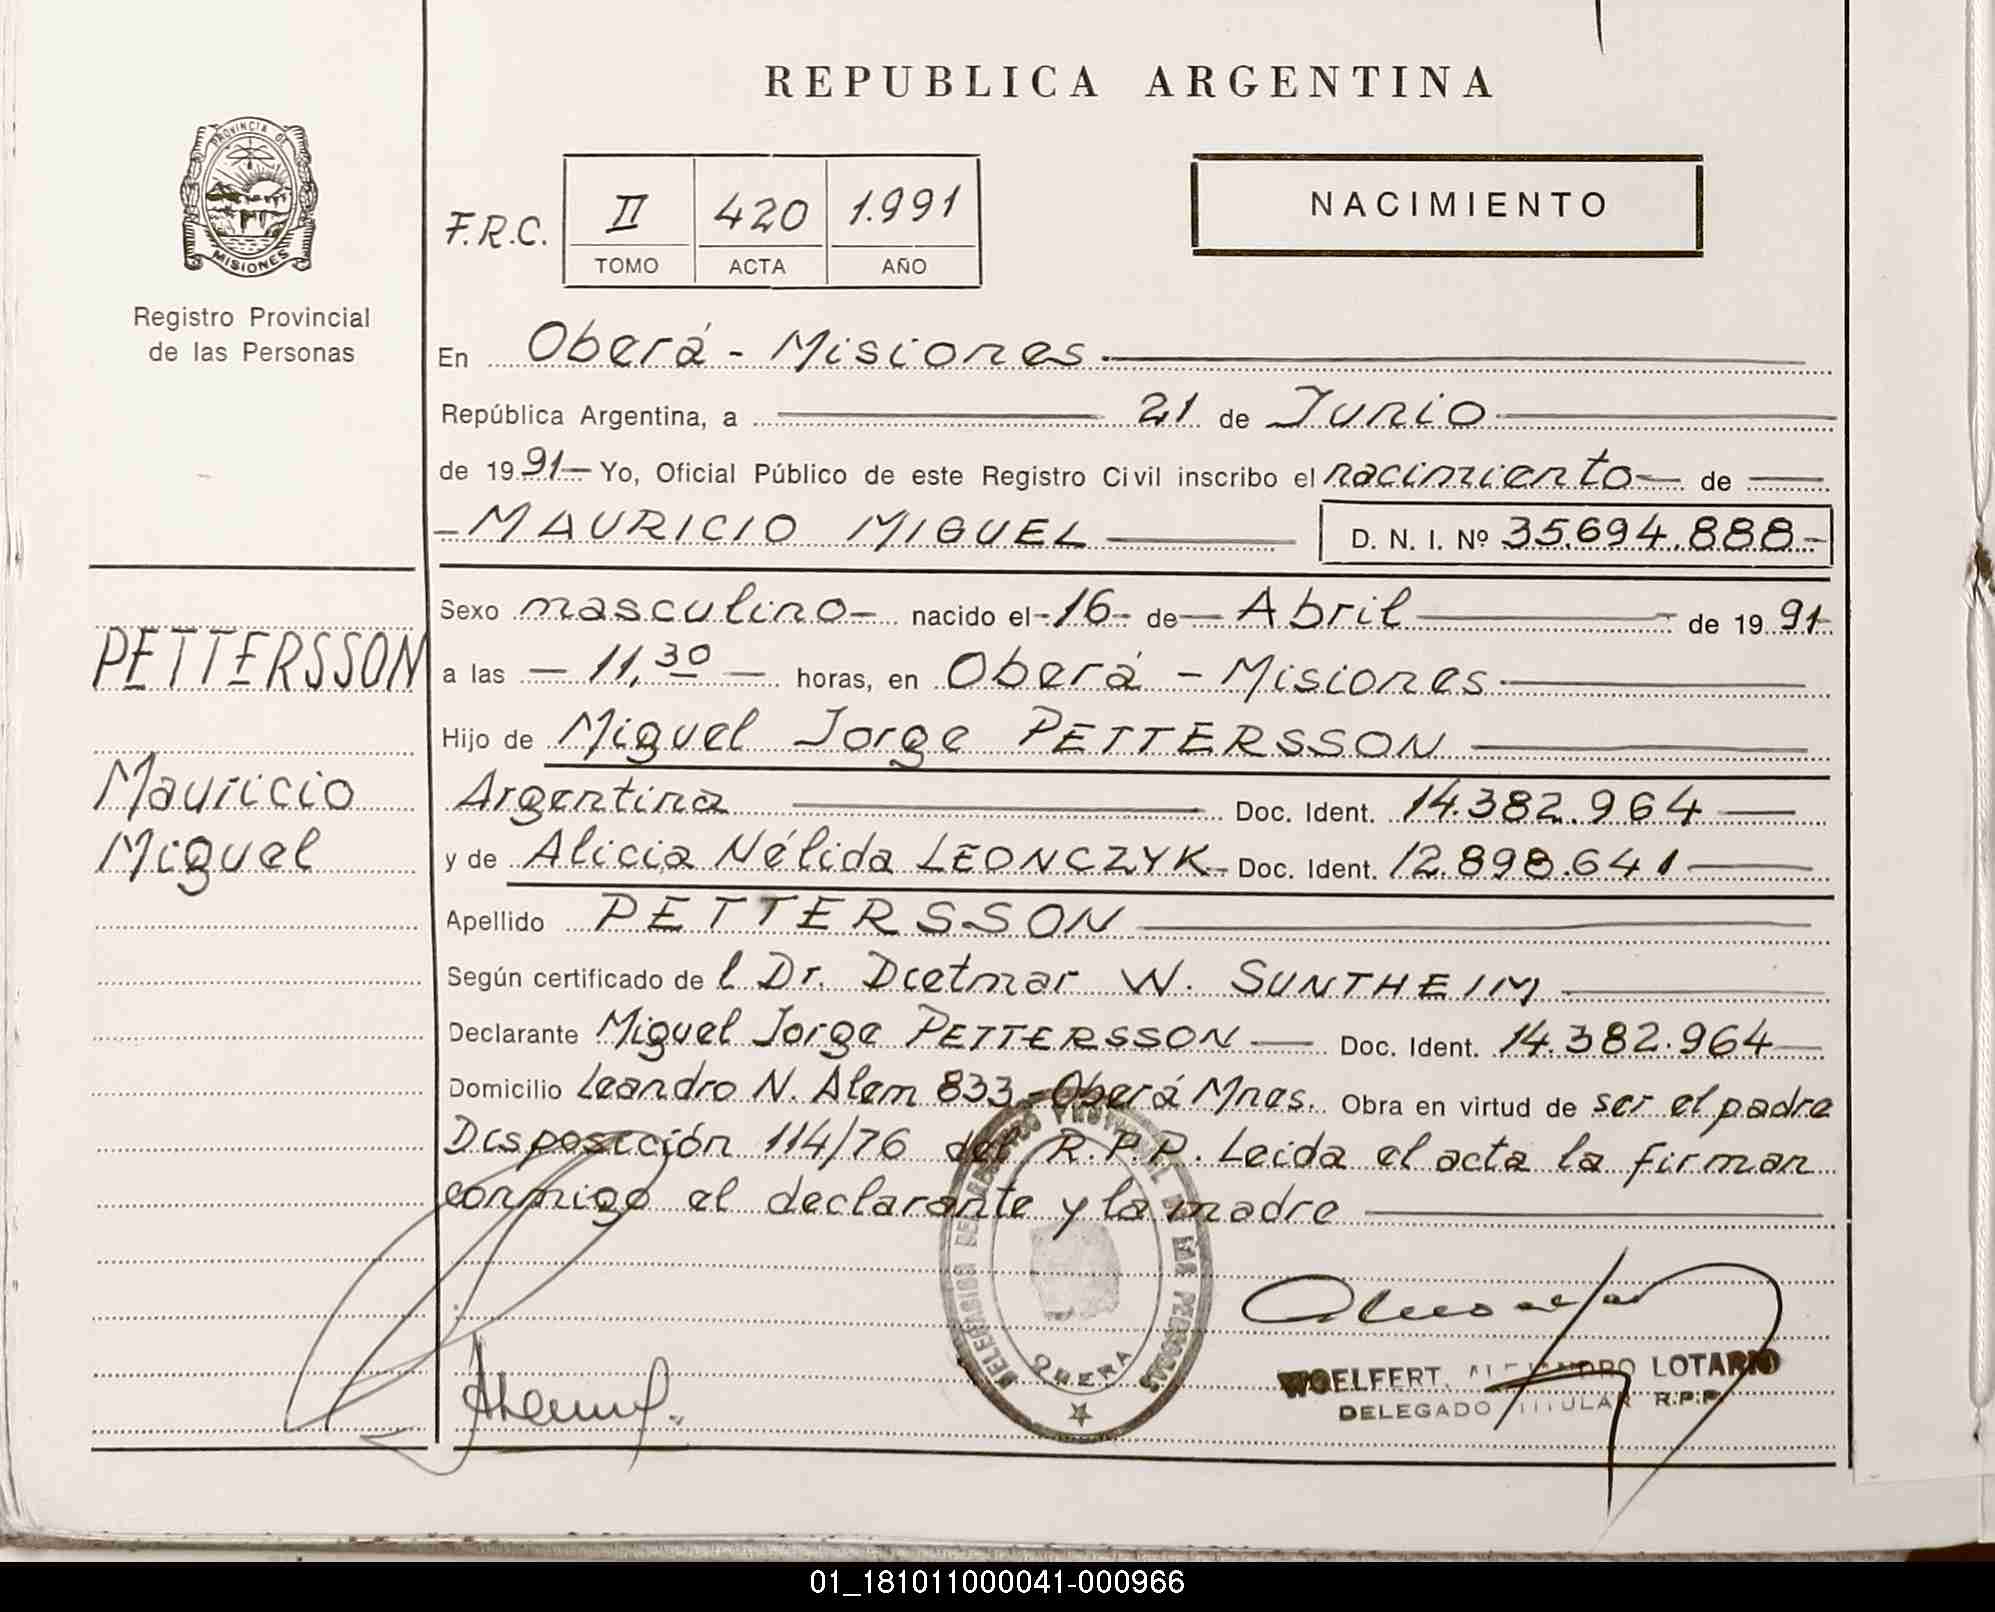 REPUBLICA ARGENTINA
PROVINCIA DE
MISIONES
Registro Provincial
de las Personas
NACIMIENTO
F.R.C. II 420 1.991
TOMO ACTA AÑO
En Oberá - Misiones
República Argentina, a 21 de Junio
de 1991 Yo, Oficial Público de este Registro Civil inscribo el nacimiento de
MAURICIO MIGUEL D. N. I. Nº 35.694.888
PETTERSSON
Mauricio
Miguel
Sexo masculino nacido el 16 de Abril de 1991
a las 11,30 horas, en Oberá - Misiones
Hijo de Miguel Jorge PETTERSSON
Argentina Doc. Ident. 14.382.964
y de Alicia Nélida LEONCZYK Doc. Ident. 12.898.641
Apellido PETTERSSON
Según certificado de l Dr. Dietmar W. SUNTHEIM
Declarante Miguel Jorge PETTERSSON Doc. Ident. 14.382.964
Domicilio Leandro N. Alem 833 - Oberá Mnes. Obra en virtud de ser el padre
Disposición 114/76 del R.P.P. Leida el acta la firman
conmigo el declarante y la madre
OBERA
WOELFERT, ALEJANDRO LOTARIO
DELEGADO TITULAR R.P.P.
01_181011000041-000966